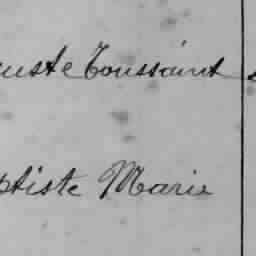 uste Toussaint
ptiste Marie